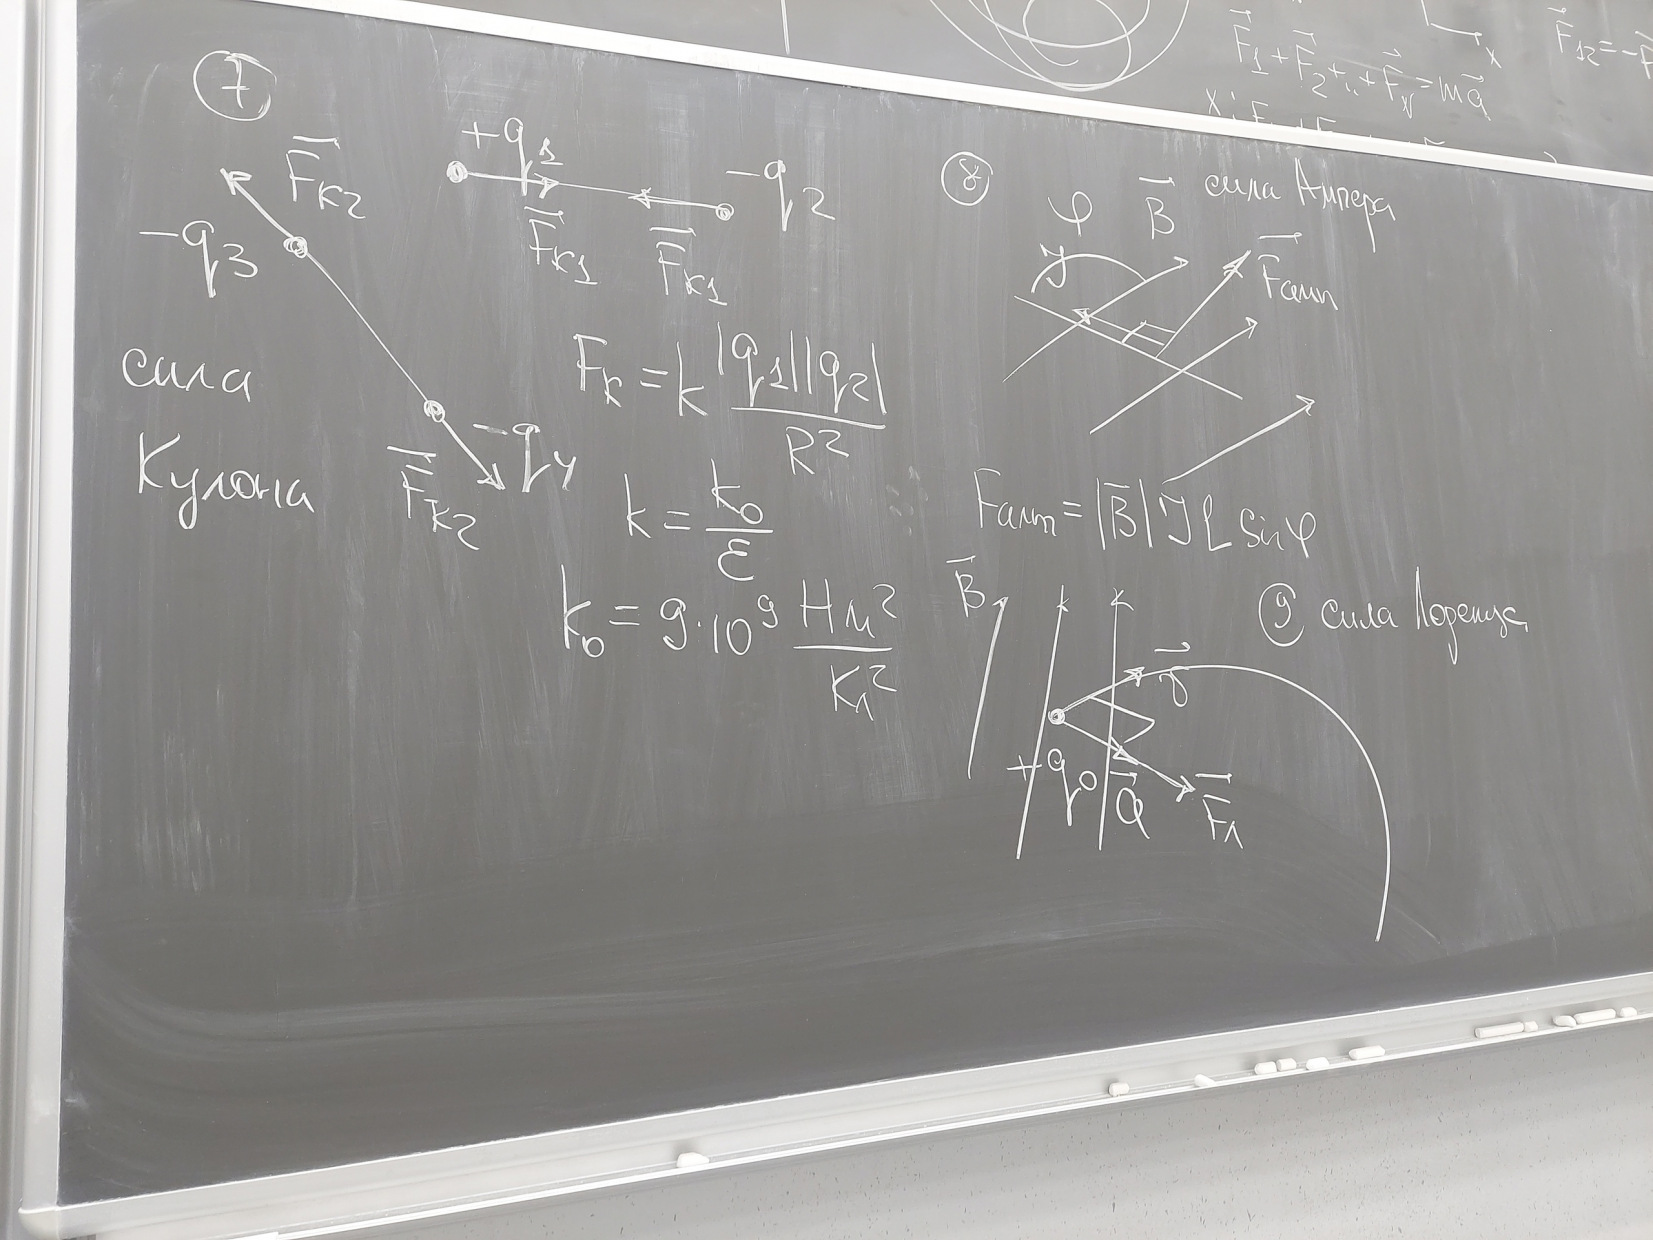 F₁ + F₂ + ... + F_N = ma
x
F₁₂ = -F
x:
7
F_K2
+q₁
-q₂
-q₃
F_K1
F_K1
сила
Кулона
-q₄
F_K2
F_K = k |q₁||q₂| / R²
k = k₀ / ε
k₀ = 9·10⁹ Нм² / Кл²
8
сила Ампера
φ
B
J
F_амп
F_амп = |B| J L sin φ
B
9 сила Лоренца
+q₀
a
F_л